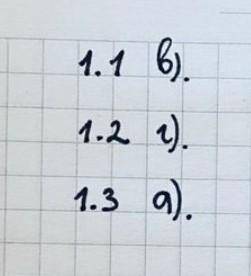 1.1 в).
1.2 г).
1.3 а).